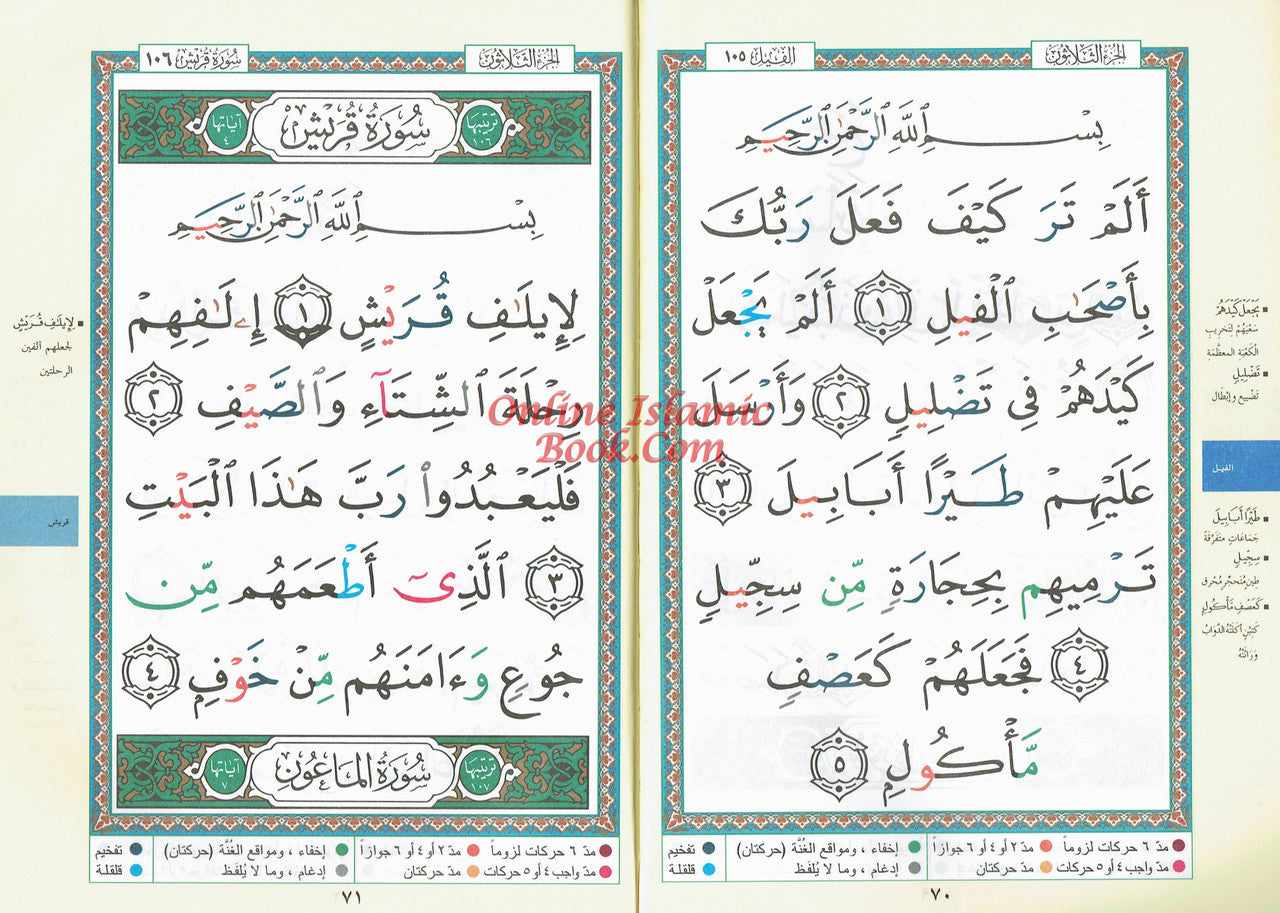 الجزء الثلاثون
الفيل ١٠٥
بِسْمِ ٱللَّهِ ٱلرَّحْمَٰنِ ٱلرَّحِيمِ
أَلَمْ تَرَ كَيْفَ فَعَلَ رَبُّكَ
بِأَصْحَٰبِ ٱلْفِيلِ ١ أَلَمْ يَجْعَلْ
كَيْدَهُمْ فِى تَضْلِيلٍ ٢ وَأَرْسَلَ
عَلَيْهِمْ طَيْرًا أَبَابِيلَ ٣
تَرْمِيهِم بِحِجَارَةٍ مِّن سِجِّيلٍ
٤ فَجَعَلَهُمْ كَعَصْفٍ
مَّأْكُولٍ ٥
يَجْعَلْ كَيْدَهُمْ
سَعْيَهُمْ لتخريبِ
الكعبة المعظّمة
تَضْلِيلٍ
تضييع وإبطال
الفيل
طَيْرًا أَبَابِيلَ
جماعاتٍ متفرّقة
سِجِّيلٍ
طين متحجّر مُحرق
كَعَصْفٍ مَّأْكُولٍ
كتبن أكلته الدّواب
وراثته
مدّ ٦ حركات لزوماً مدّ ٢ أو ٤ أو ٦ جوازاً إخفاء ، ومواقع الغُنَّة (حركتان) تفخيم
مدّ واجب ٤ أو ٥ حركات مدّ حركتان إدغام ، وما لا يُلفَظ قلقلة
٧٠
الجزء الثلاثون
سورة قريش ١٠٦
ترتيبها ١٠٦ سُورَةُ قُرَيْشٍ آياتها ٤
بِسْمِ ٱللَّهِ ٱلرَّحْمَٰنِ ٱلرَّحِيمِ
لِإِيلَٰفِ قُرَيْشٍ ١ إِۦلَٰفِهِمْ
رِحْلَةَ ٱلشِّتَآءِ وَٱلصَّيْفِ ٢
فَلْيَعْبُدُوا۟ رَبَّ هَٰذَا ٱلْبَيْتِ
٣ ٱلَّذِىٓ أَطْعَمَهُم مِّن
جُوعٍ وَءَامَنَهُم مِّنْ خَوْفٍ ٤
ترتيبها ١٠٧ سُورَةُ المَاعُونِ آياتها ٧
لِإِيلَٰفِ قُرَيْشٍ
لجعلهم آلفين
الرحلتين
قريش
مدّ ٦ حركات لزوماً مدّ ٢ أو ٤ أو ٦ جوازاً إخفاء ، ومواقع الغُنَّة (حركتان) تفخيم
مدّ واجب ٤ أو ٥ حركات مدّ حركتان إدغام ، وما لا يُلفَظ قلقلة
٧١
Online Islamic
Book.Com